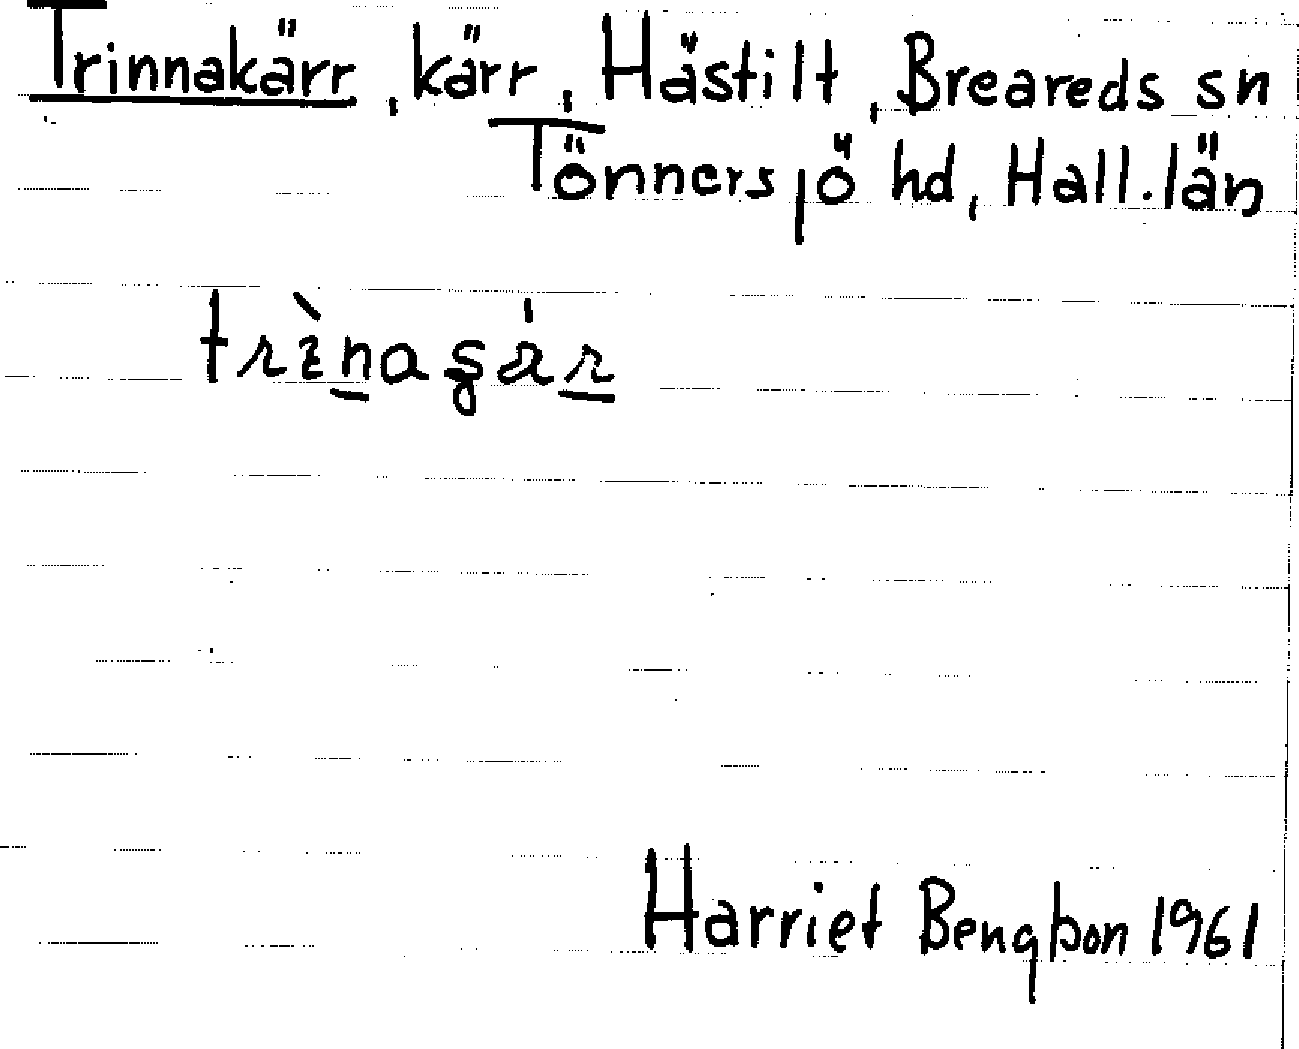 Trinnakärr, kärr, Hästilt, Breareds sn
Tönnersjö hd, Hall. län
Harriet Bengtson 1961